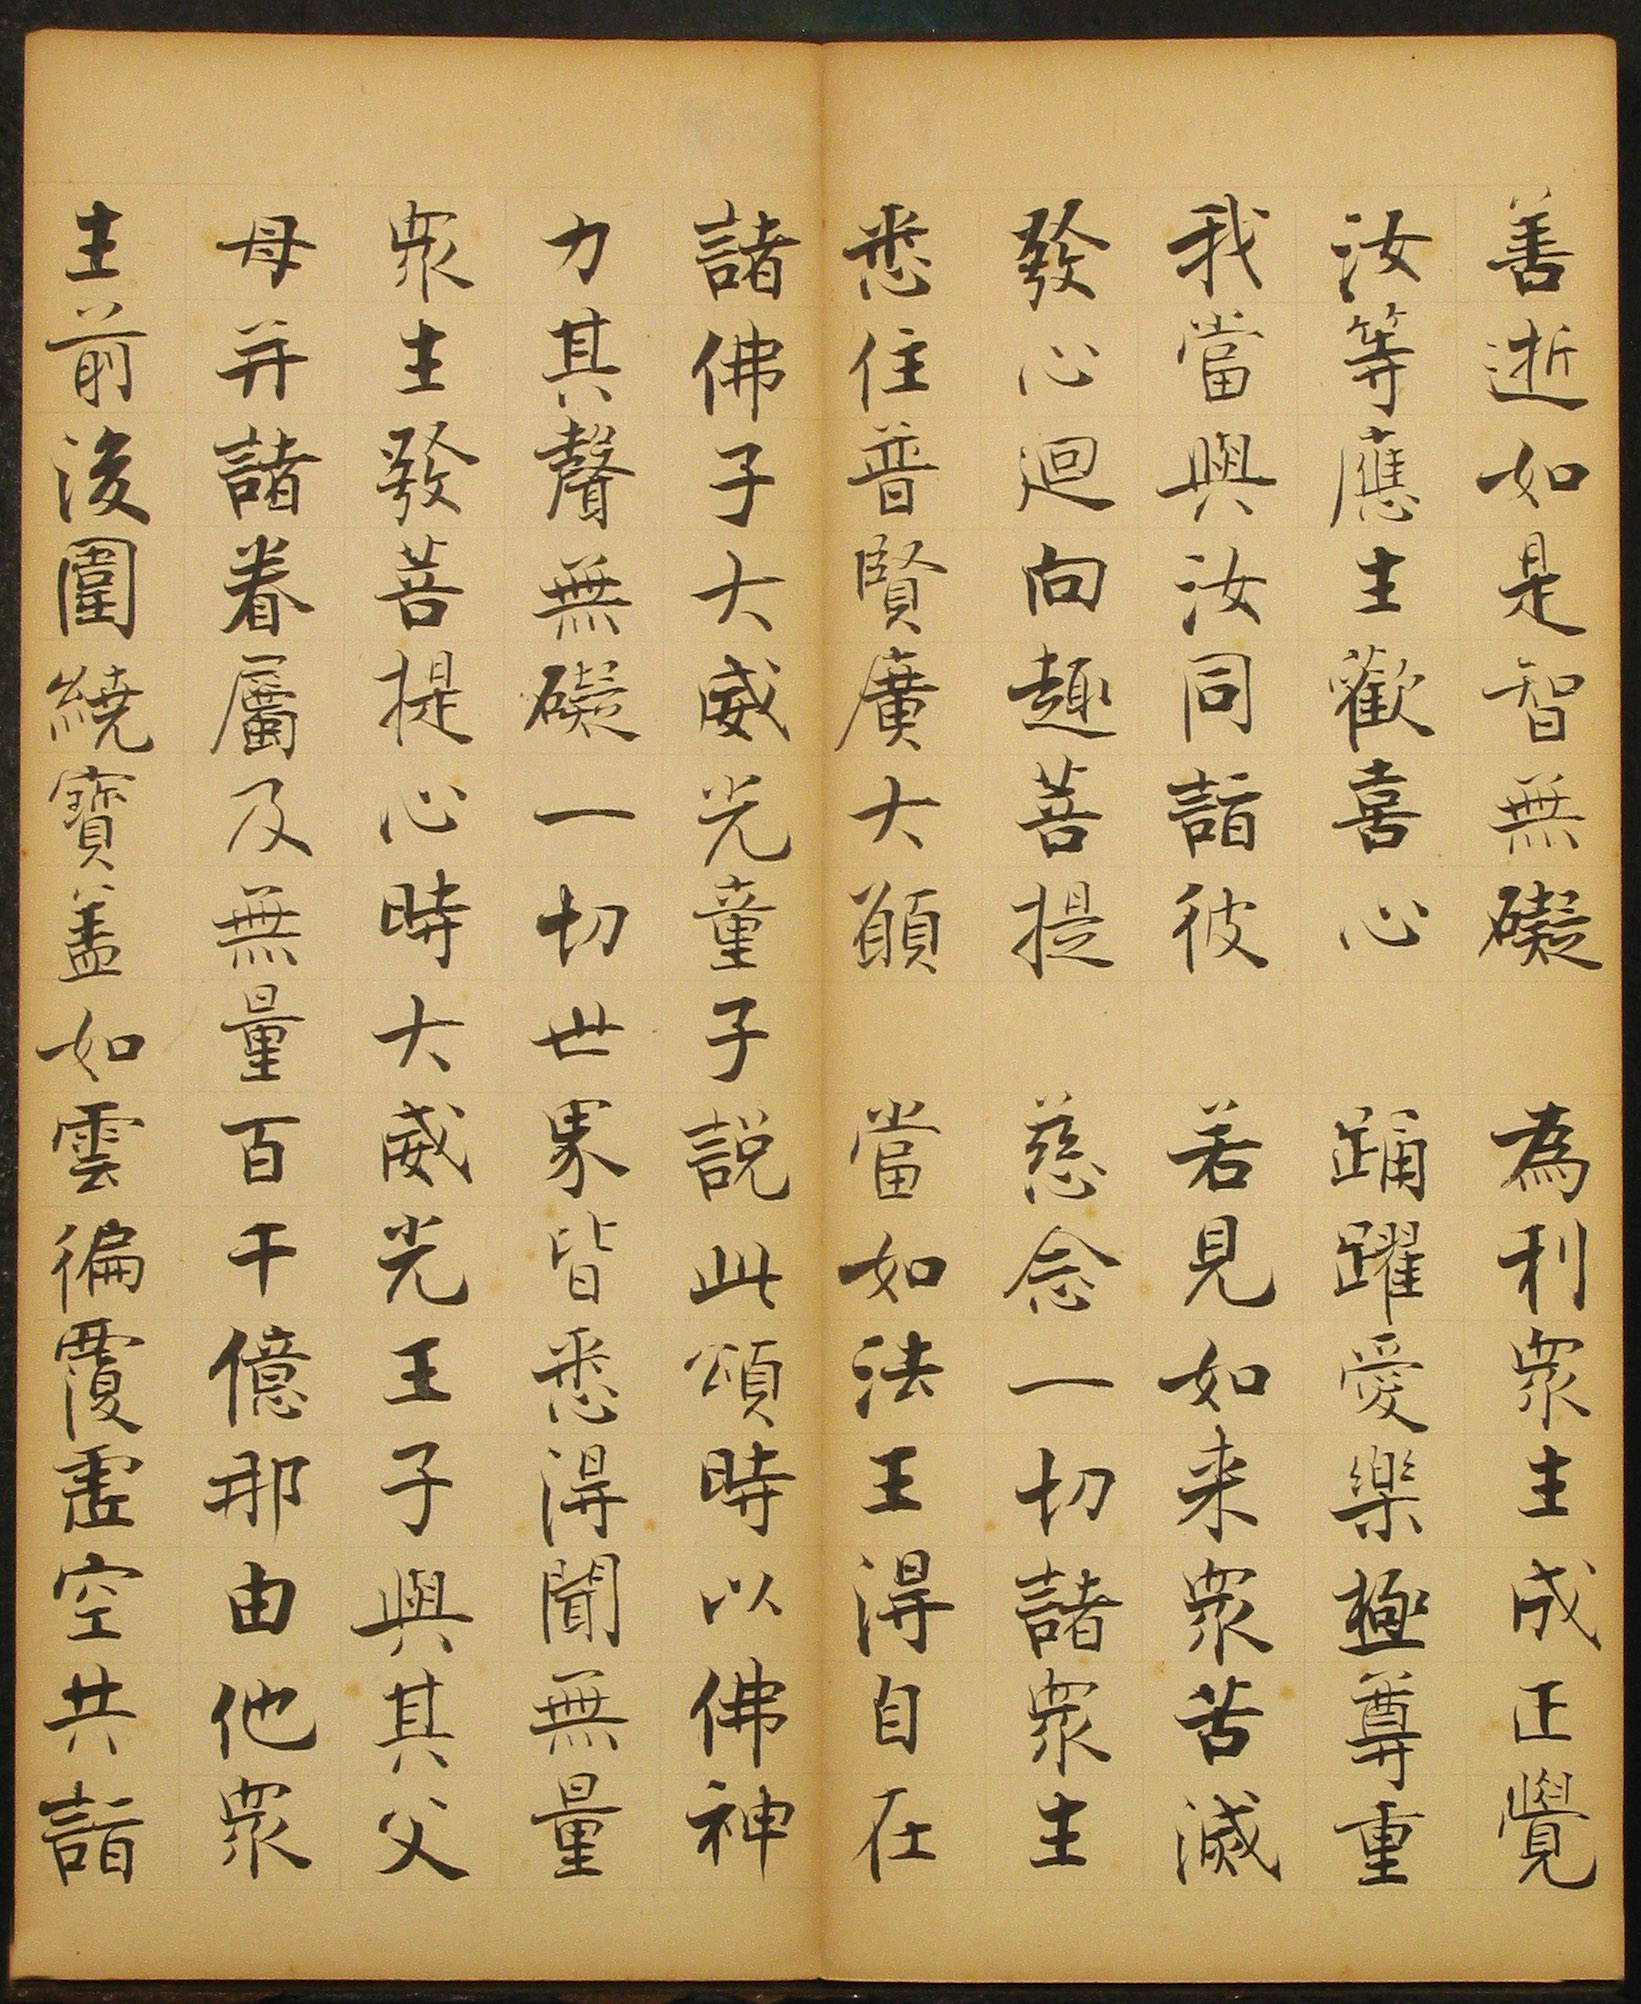 善逝如是智無礙　為利眾生成正覺
汝等應生歡喜心　踊躍愛樂極尊重
我當與汝同詣彼　若見如来眾苦滅
發心迴向趣菩提　慈念一切諸眾生
悉住普賢廣大願　當如法王得自在
諸佛子大威光童子說此頌時以佛神
力其聲無礙一切世界皆悉得聞無量
眾生發菩提心時大威光王子與其父
母并諸眷屬及無量百千億那由他眾
生前後圍繞寶盖如雲徧覆虛空共詣